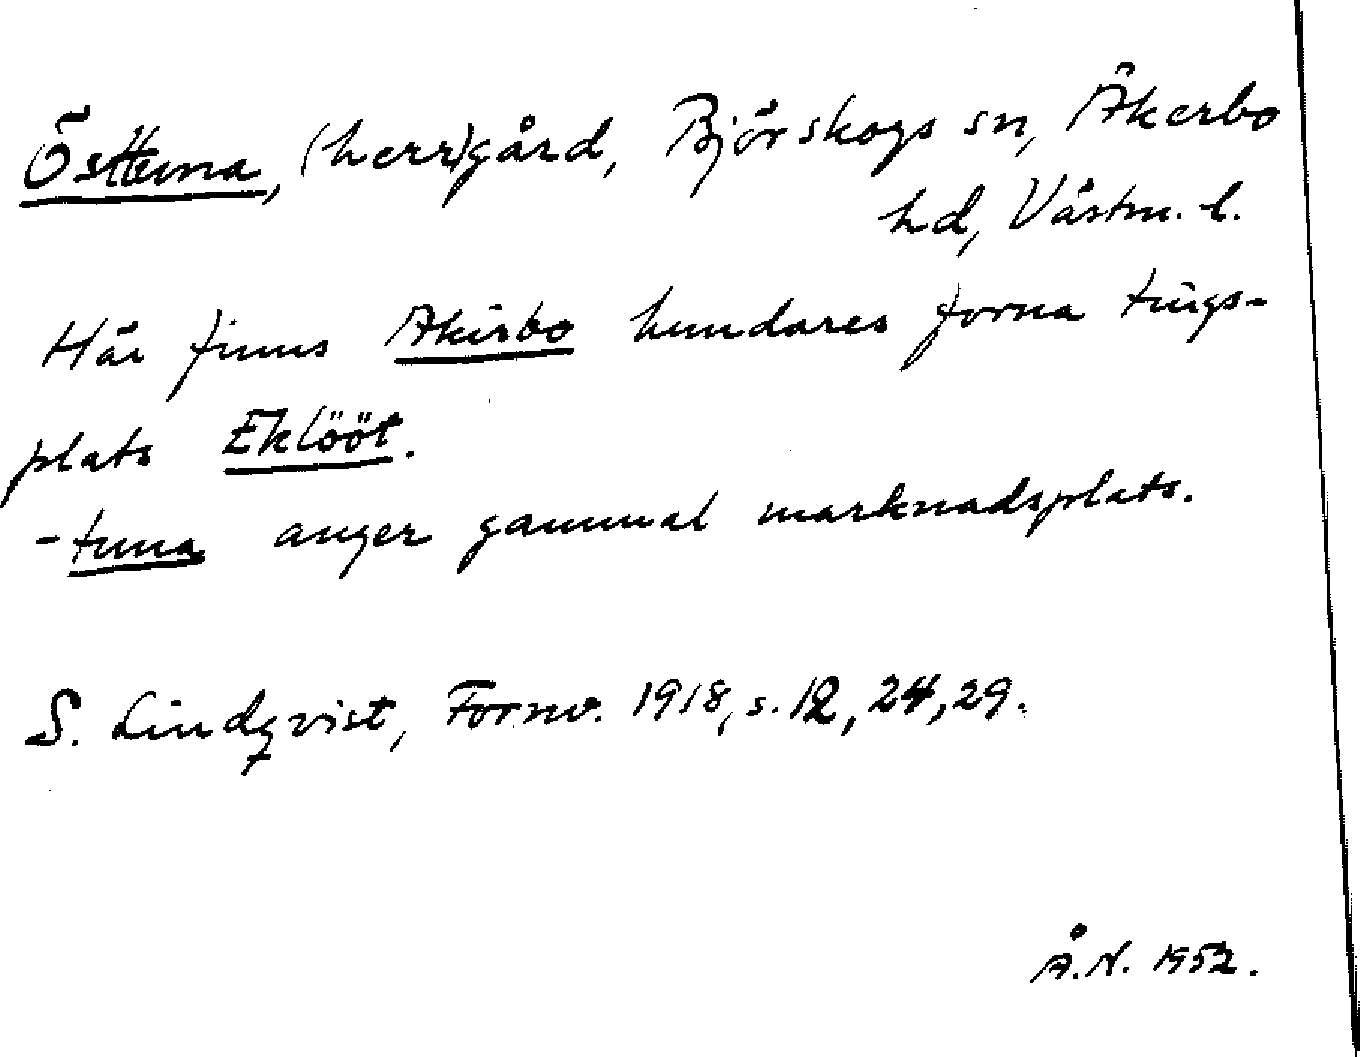 Östtuna, (herr)gård, Björskogs sn, Åkerbo
hd, Västm. l.
Här finns Åkerbo hundares forna tings-
plats Eklööt.
-tuna anger gammal marknadsplats.
S. Lindqvist, Fornv. 1918, s. 12, 24, 29.
Å.N. 1952.